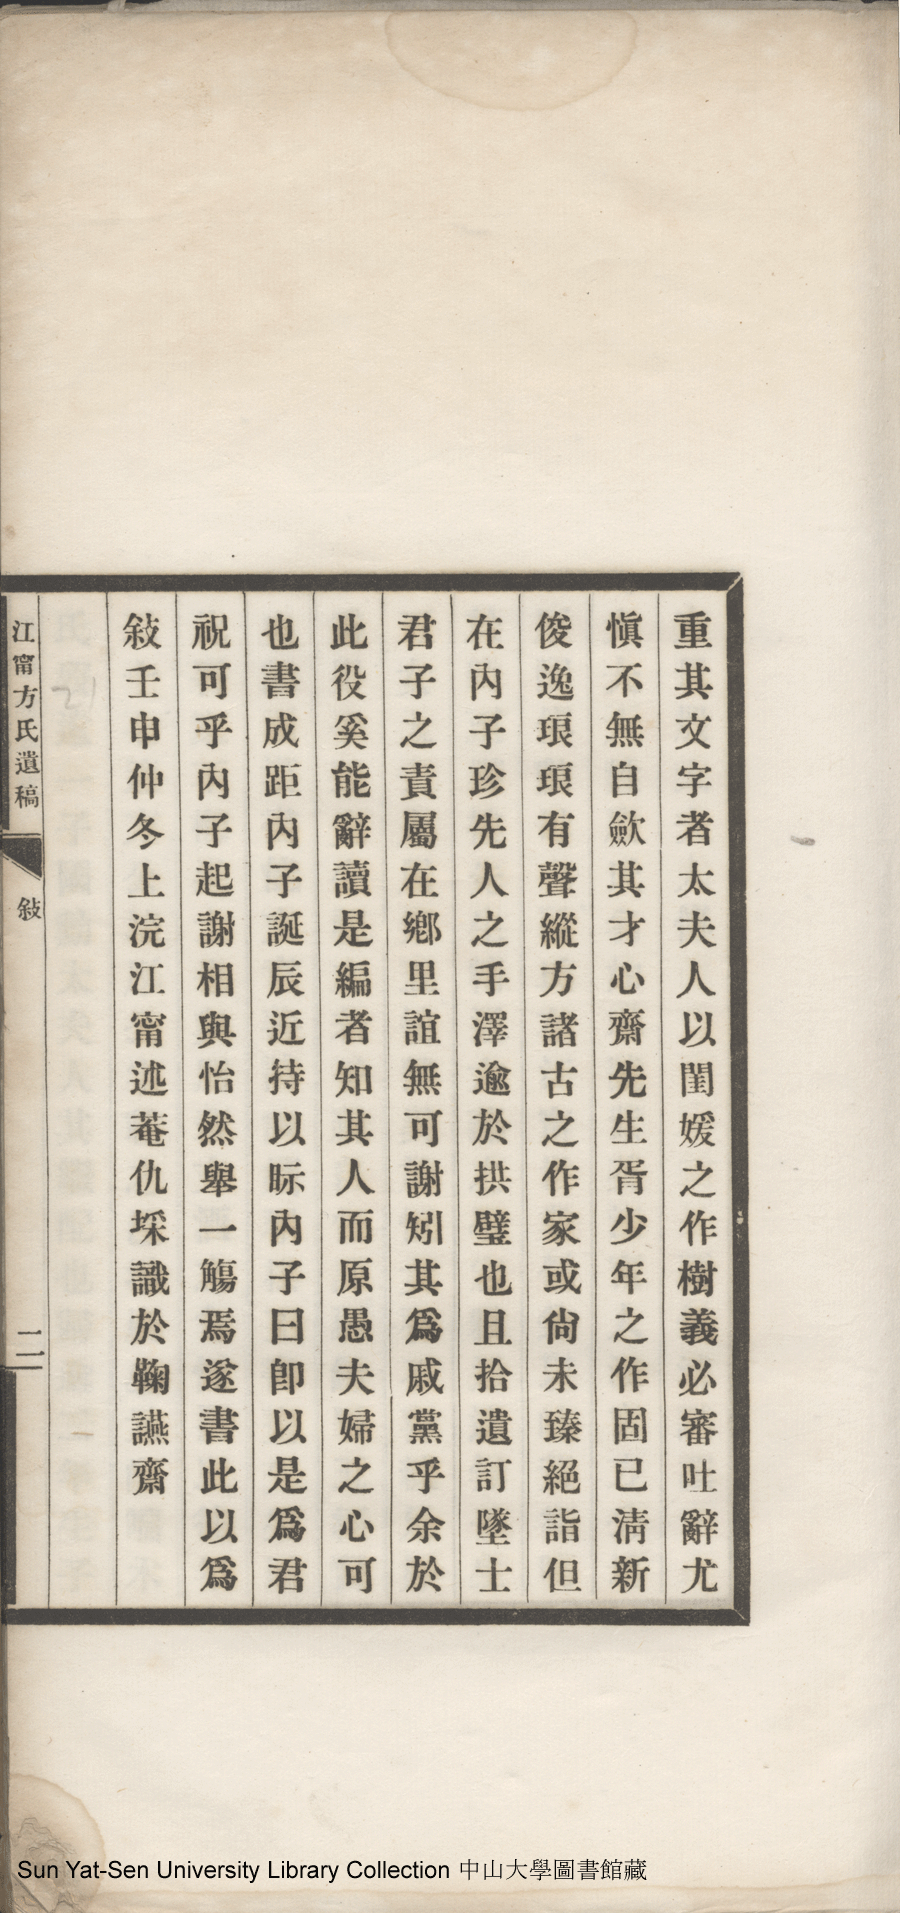 重其文字者太夫人以閨媛之作樹義必審吐辭尤
愼不無自歛其才心齋先生胥少年之作固已淸新
俊逸琅琅有聲縱方諸古之作家或尙未臻絕詣但
在內子珍先人之手澤逾於拱璧也且拾遺訂墜士
君子之責屬在鄕里誼無可謝矧其爲戚黨乎余於
此役奚能辭讀是編者知其人而原愚夫婦之心可
也書成距內子誕辰近持以眎內子曰卽以是爲君
祝可乎內子起謝相與怡然舉一觴焉遂書此以爲
敍壬申仲冬上浣江甯述菴仇埰識於鞠讌齋
江甯方氏遺稿
敍
二
Sun Yat-Sen University Library Collection 中山大學圖書館藏